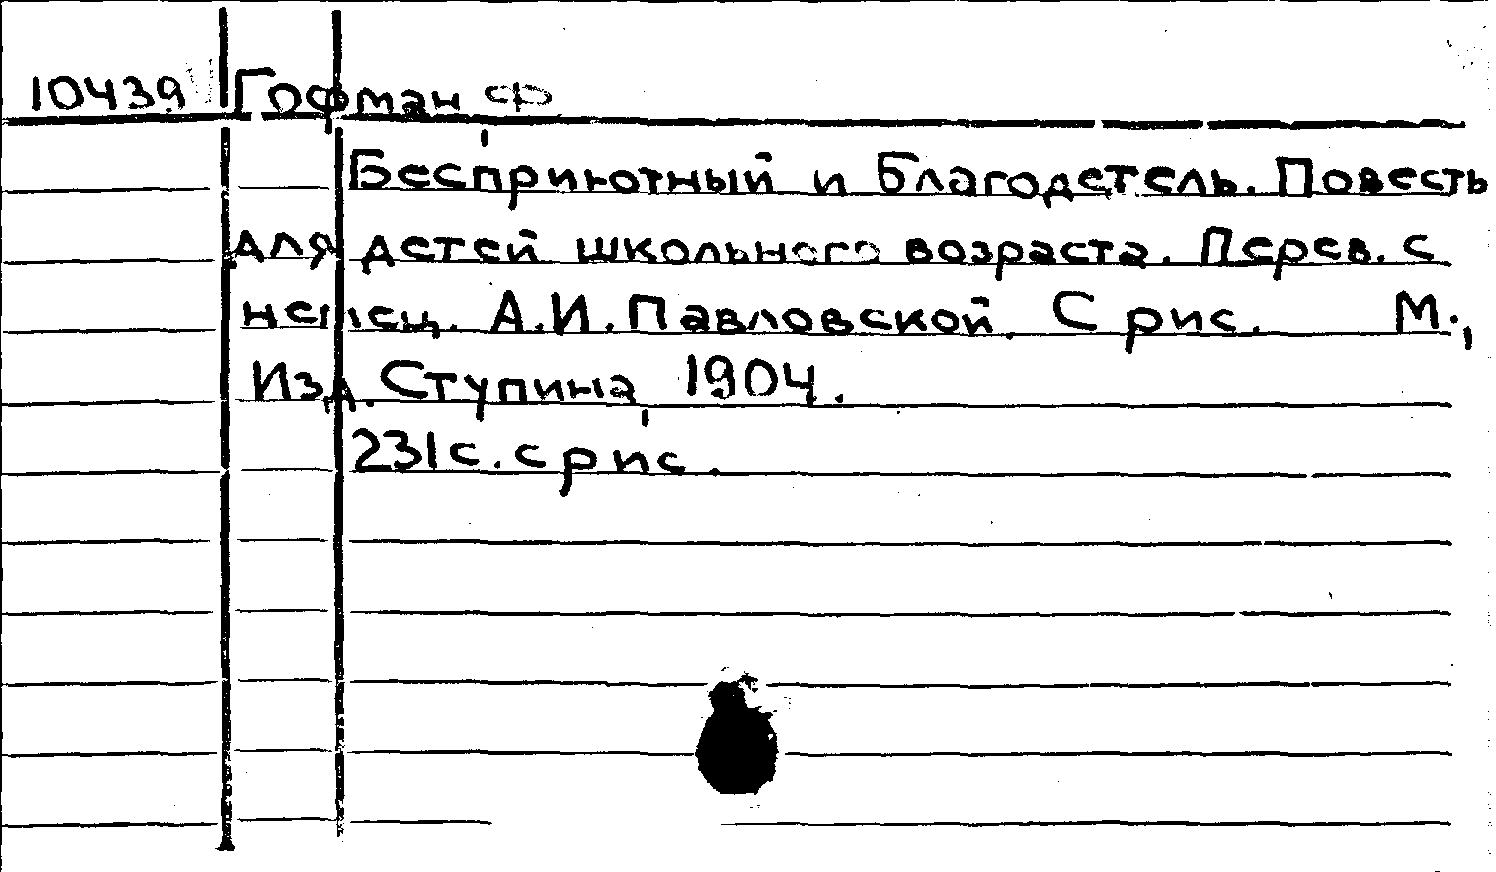 10439 Гофман Ф
Бесприютный и Благодетель. Повесть
для детей школьного возраста. Перев. с
немец. А.И. Павловской. С рис. М.,
Изд. Ступина, 1904.
231 с. с рис.